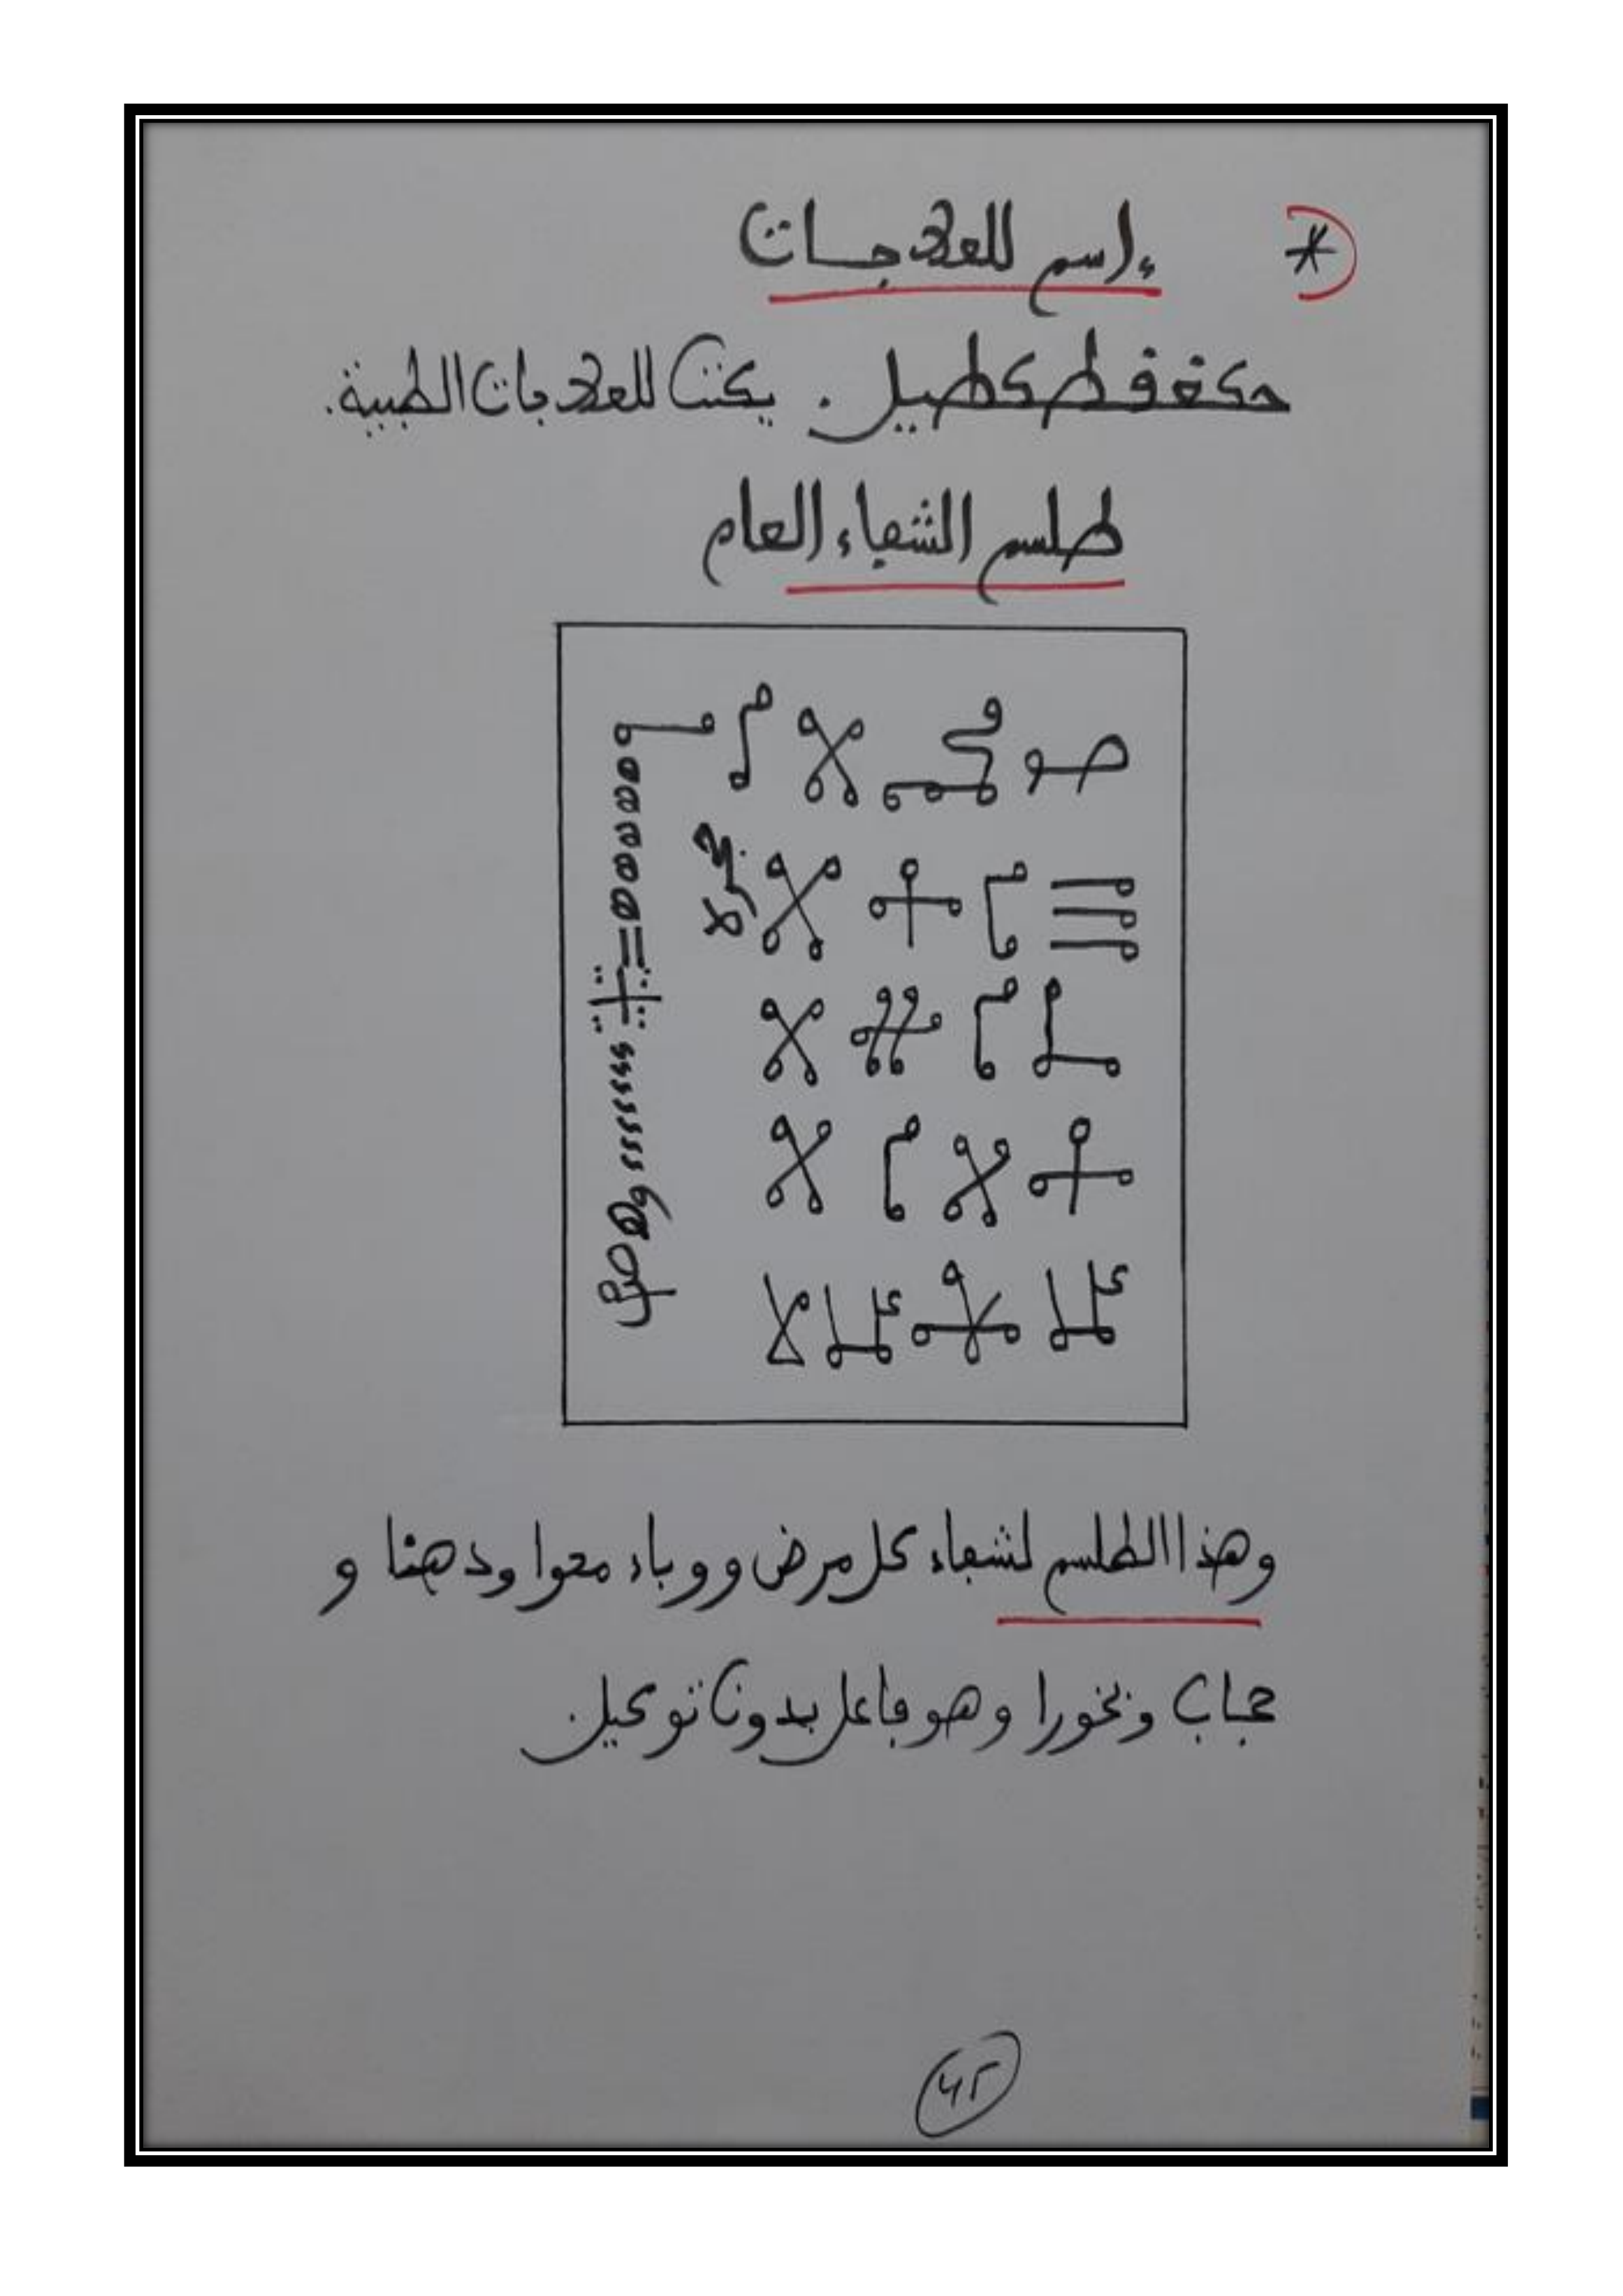 * إسم للعلاجات
حكغفطكطيل. يكتب للعلاجات الطبية.
طلسم الشفاء العام
وهذا الطلسم لشفاء كل مرض ووباء محوا ودهنا و
حجاب وبخورا وهو فاعل بدون توكيل.